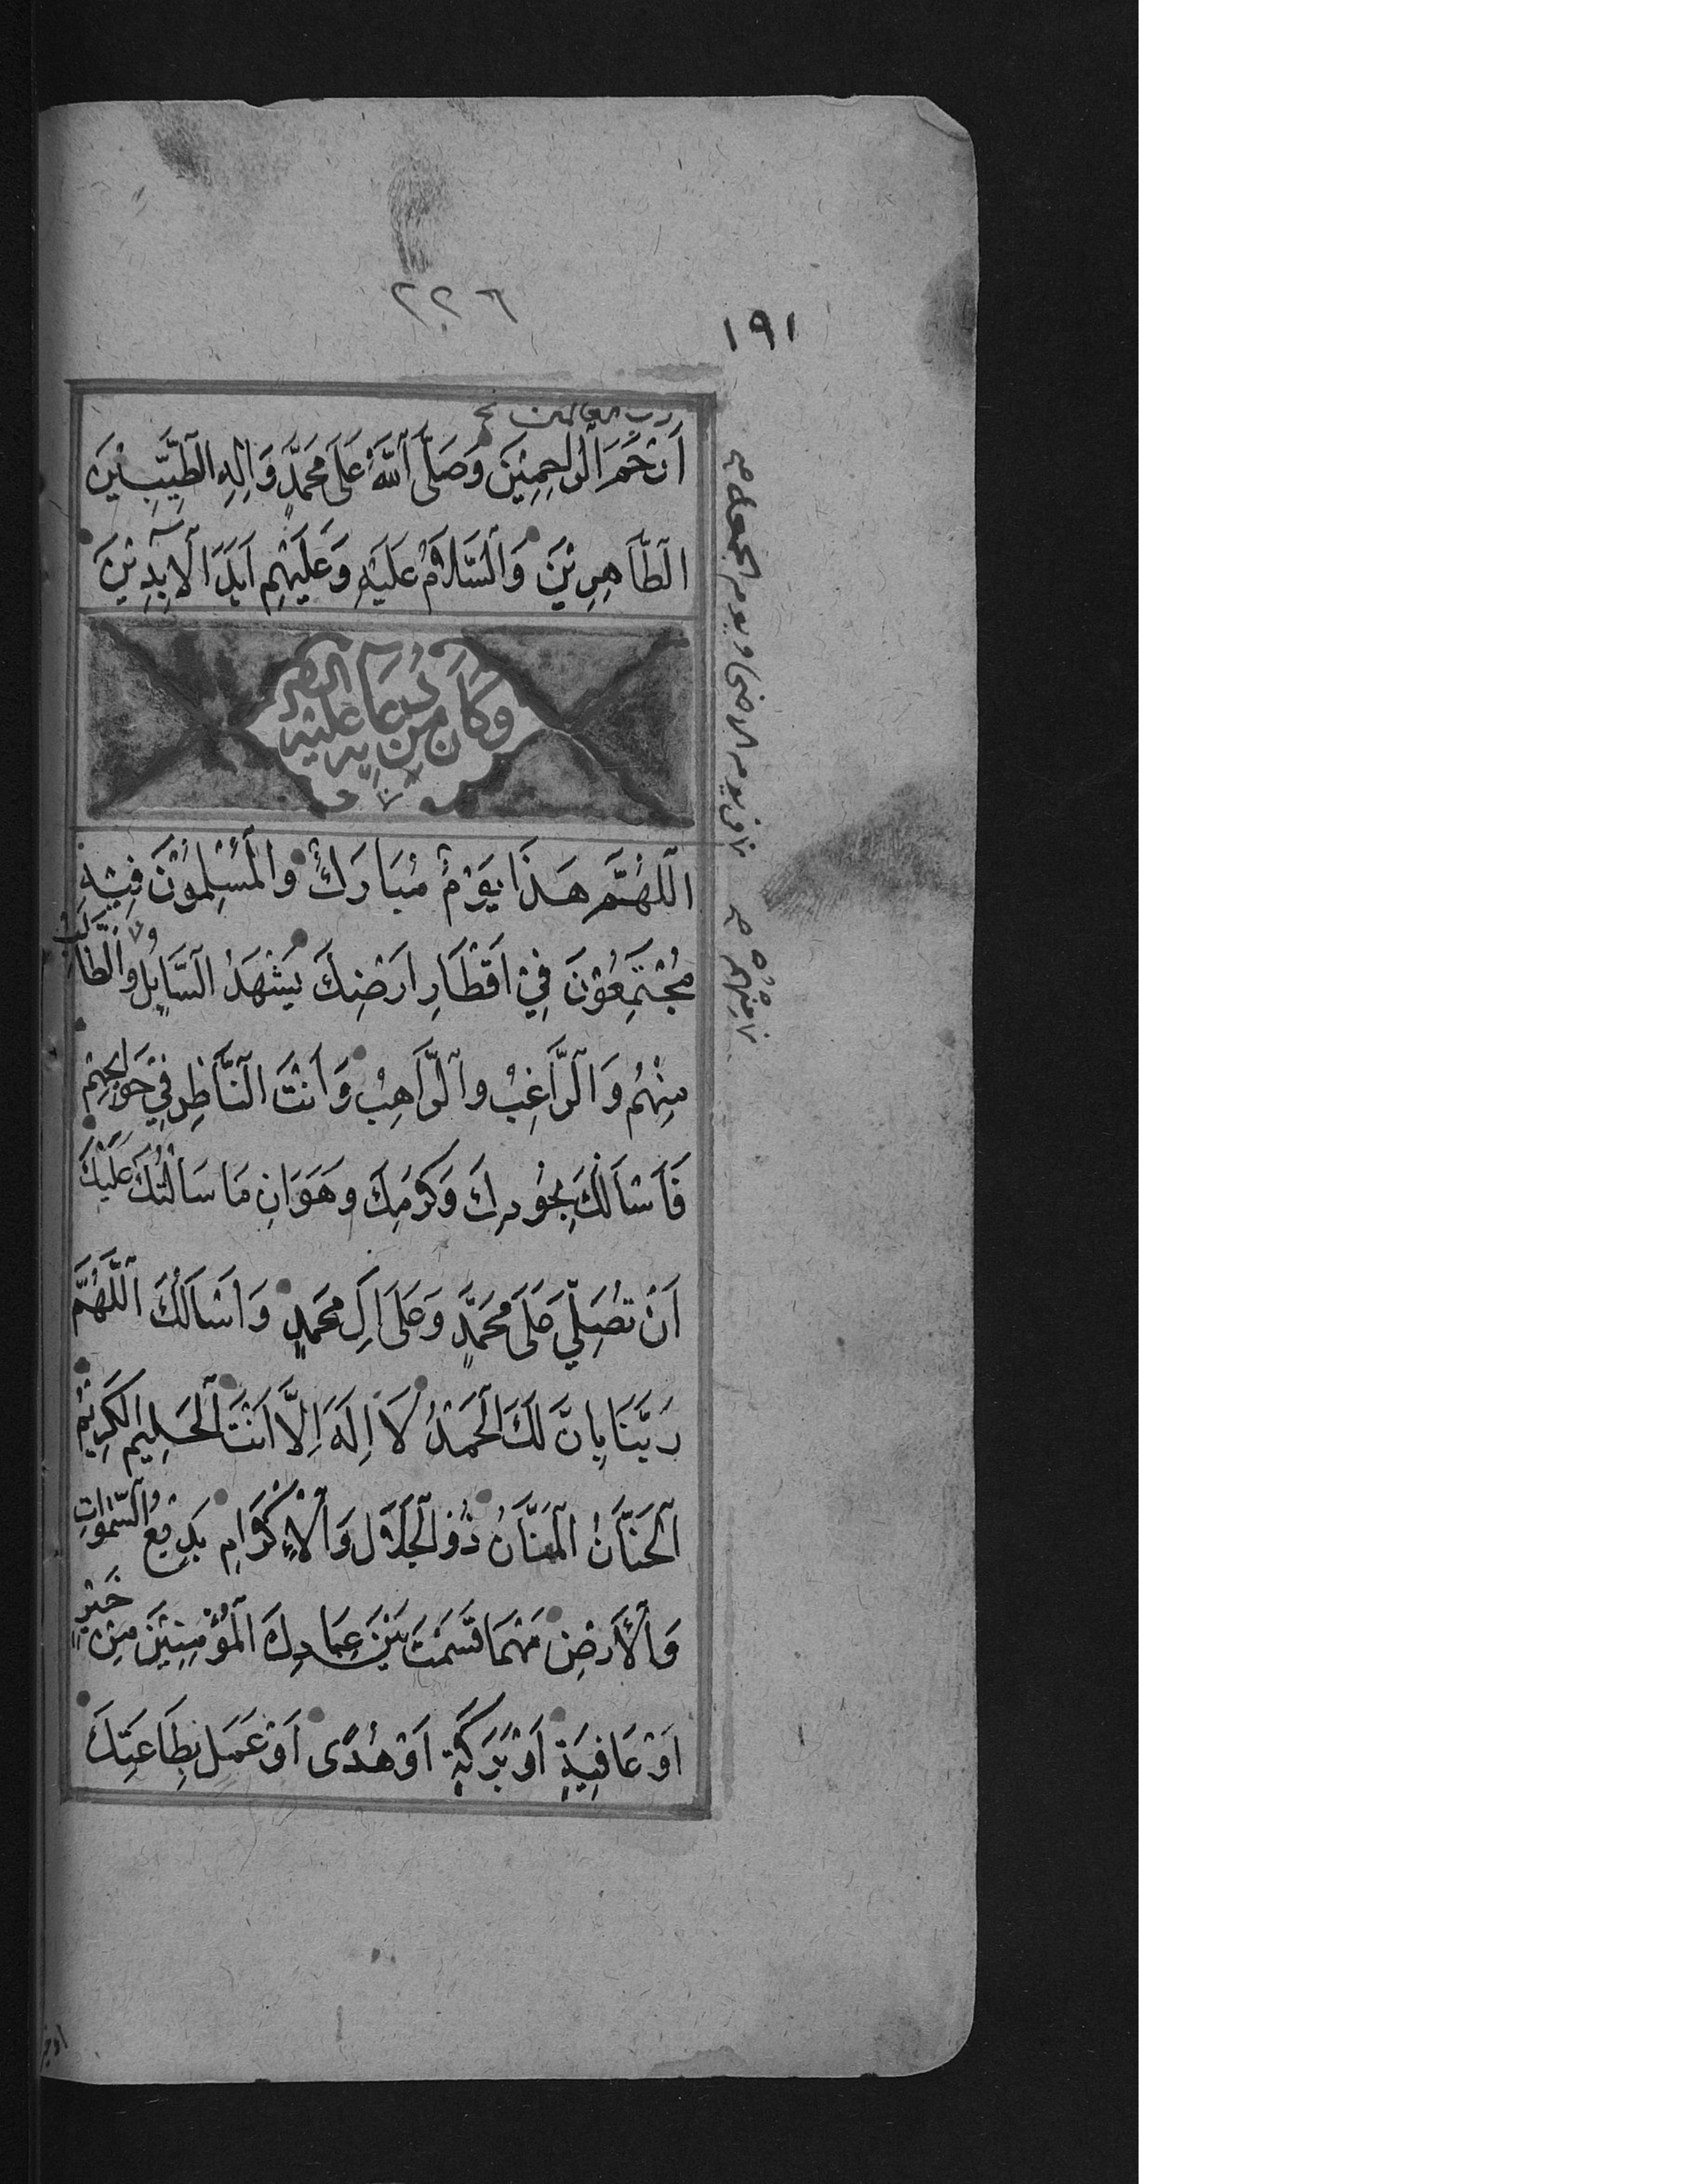 ٢٢٦
١٩١
رب العالمين خ
اَرْحَمَ الرَّاحِمِيْنَ وَصَلَّى اللّٰهُ عَلَى مُحَمَّدٍ وَاٰلِهِ الطَّيِّبِيْنَ
الطَّاهِرِيْنَ وَالسَّلَامُ عَلَيْهِ وَعَلَيْهِمْ اَبَدَ الْاٰبِدِيْنَ
وَكَانَ مِنْ دُعَائِهِ عَلَيْهِ
في يوم الاضحى ويوم الجمعة صح
اَللّٰهُمَّ هَذَا يَوْمٌ مُبَارَكٌ وَالْمُسْلِمُوْنَ فِيْهِ
مُجْتَمِعُوْنَ فِيْ اَقْطَارِ اَرْضِكَ يَشْهَدُ السَّايِلُ وَالطَّالِبُ
مِنْهُمْ صح
مِنْهُمْ وَالرَّاغِبُ وَالرَّاهِبُ وَاَنْتَ النَّاظِرُ فِيْ حَوَايِجِهِمْ
فَاَسْاَلُكَ بِجُوْدِكَ وَكَرَمِكَ وَهَوَانِ مَا سَاَلْتُكَ عَلَيْكَ
اَنْ تُصَلِّيَ عَلَى مُحَمَّدٍ وَعَلَى اٰلِ مُحَمَّدٍ وَاَسْاَلُكَ اللّٰهُمَّ
رَبَّنَا بِاَنَّ لَكَ الْحَمْدُ لَا اِلَهَ اِلَّا اَنْتَ الْحَلِيْمُ الْكَرِيْمُ
الْحَنَّانُ الْمَنَّانُ ذُو الْجَلَالِ وَالْاِكْرَامِ بَدِيْعُ السَّمٰوَاتِ
وَالْاَرْضِ مَهْمَا قَسَمْتَ بَيْنَ عِبَادِكَ الْمُؤْمِنِيْنَ مِنْ خَيْرٍ
اَوْ عَافِيَةٍ اَوْ بَرَكَةٍ اَوْ هُدًى اَوْ عَمَلٍ بِطَاعَتِكَ